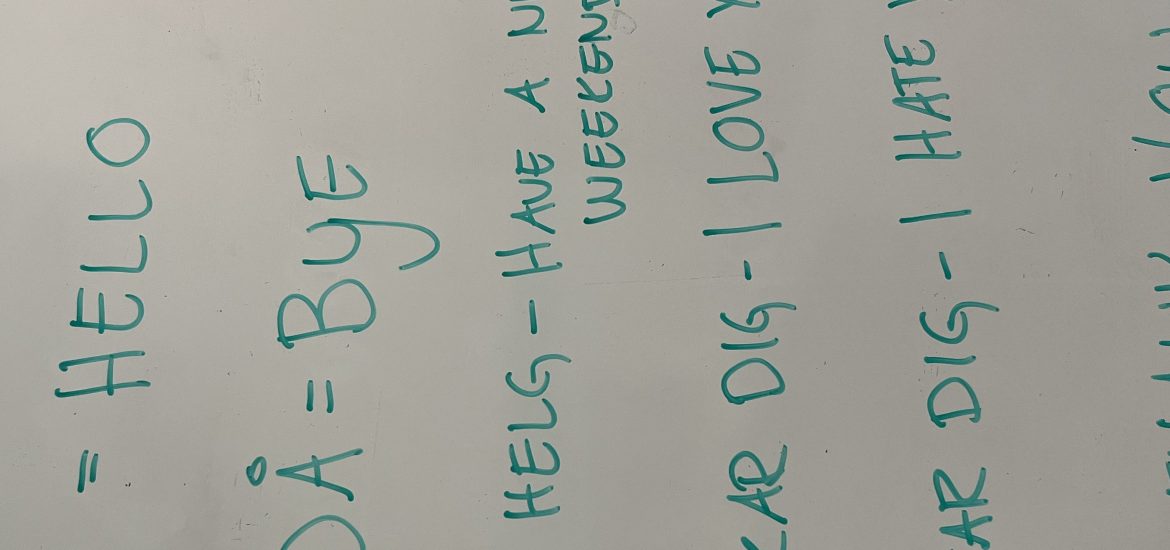 = HELLO
DÅ = BYE
HELG - HAVE A
WEEKEND
AR DIG - I LOVE
AR DIG - I HATE